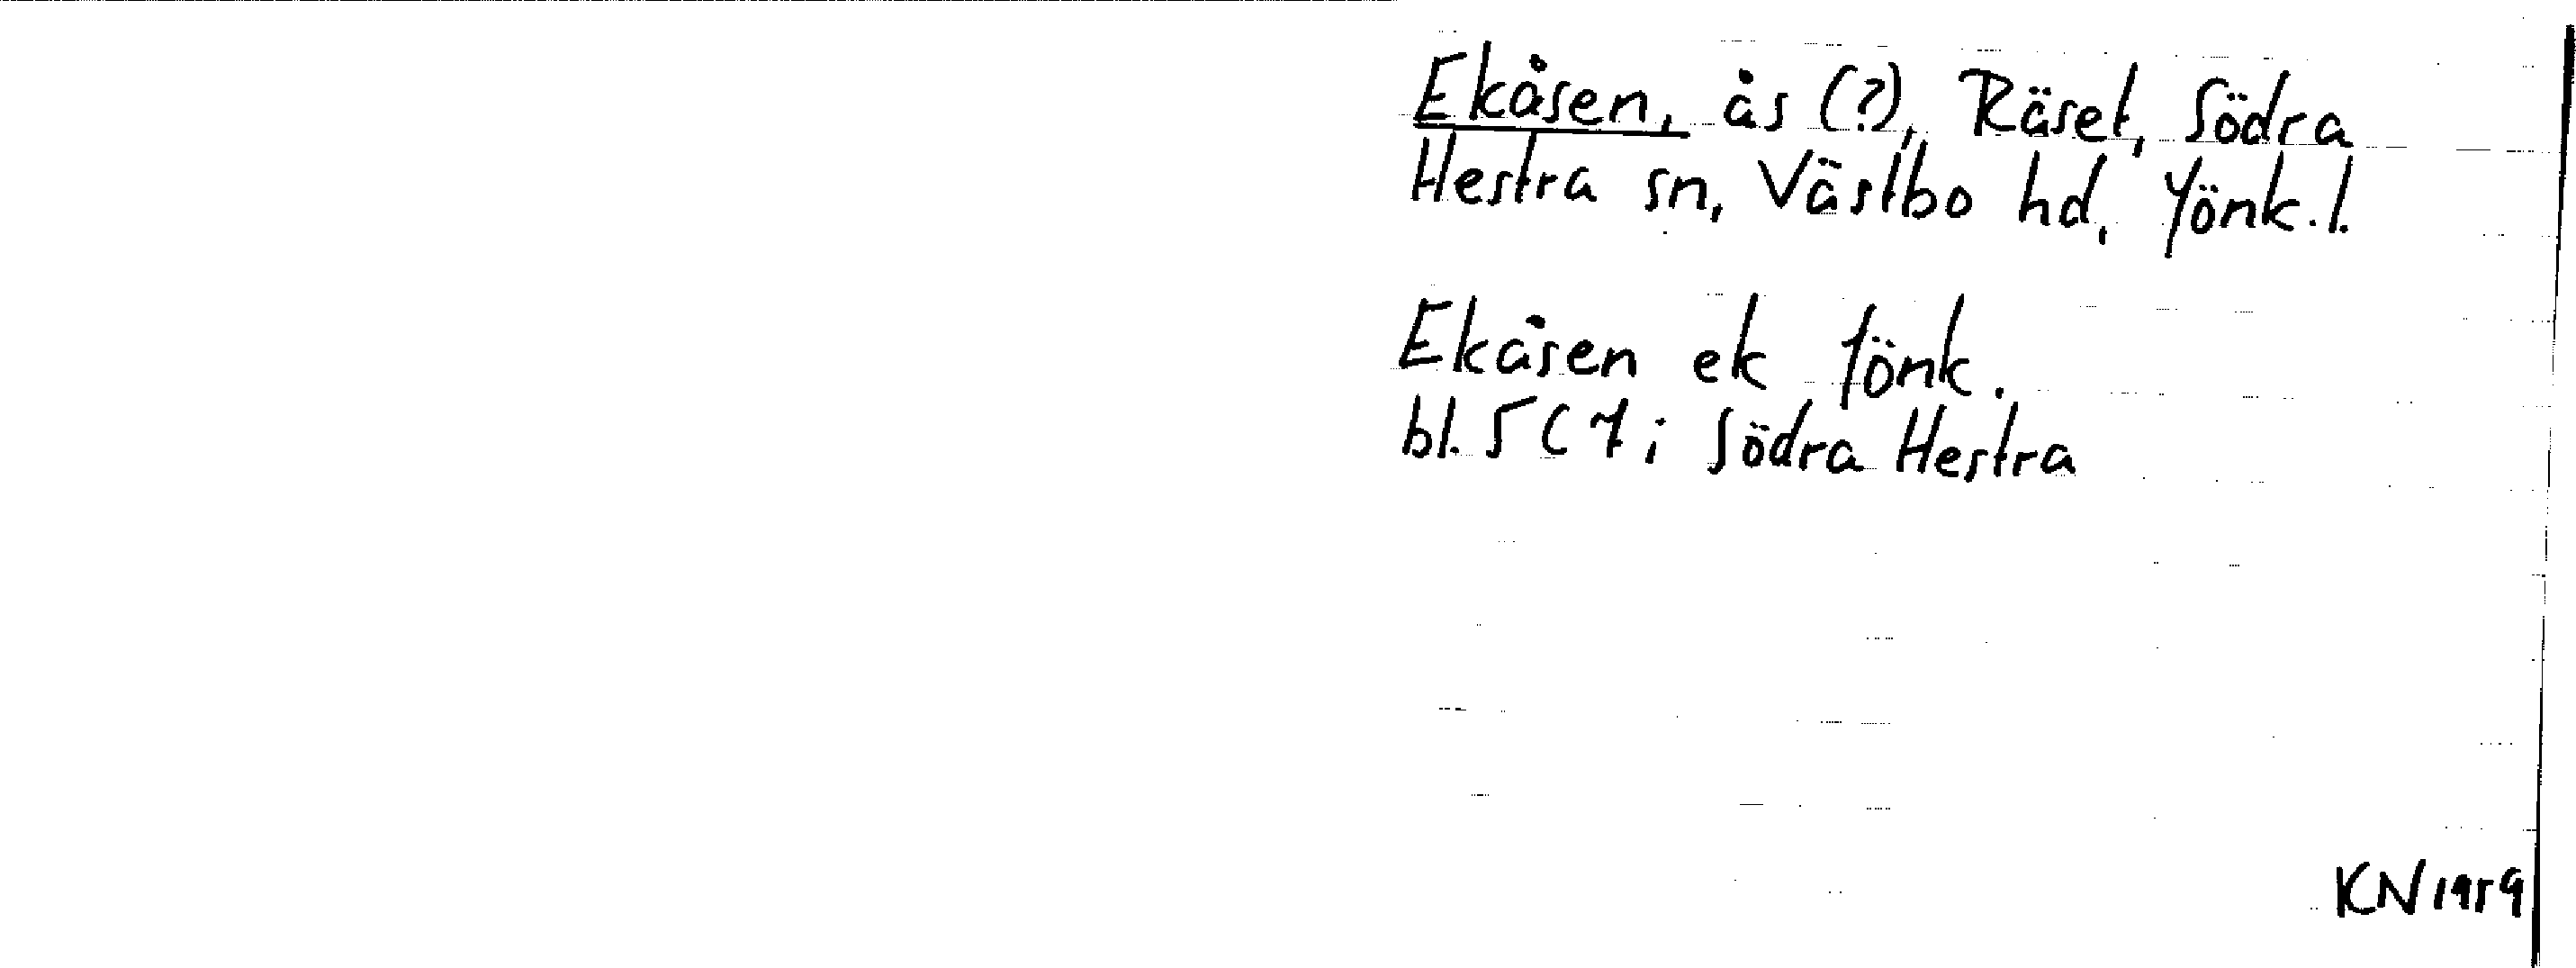 Ekåsen, ås (?), Räset, Södra
Hestra sn, Västbo hd, Jönk. l.
Ekåsen ek Jönk.
bl. 5 C 7 i Södra Hestra
KN 1959